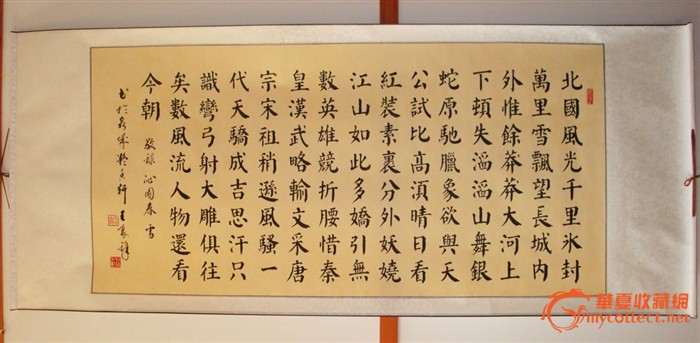 北國風光千里氷封
萬里雪飄望長城内
外惟餘莽莽大河上
下頓失滔滔山舞銀
蛇原馳臘象欲與天
公試比高湏晴日看
紅裝素裹分外妖嬈
江山如此多嬌引無
數英雄競折腰惜秦
皇漢武略輸文采唐
宗宋祖稍遜風騷一
代天驕成吉思汗只
識彎弓射大雕俱往
矣數風流人物還看
今朝
敬録 沁園春 雪
書於
華夏收藏網
mycollect.net